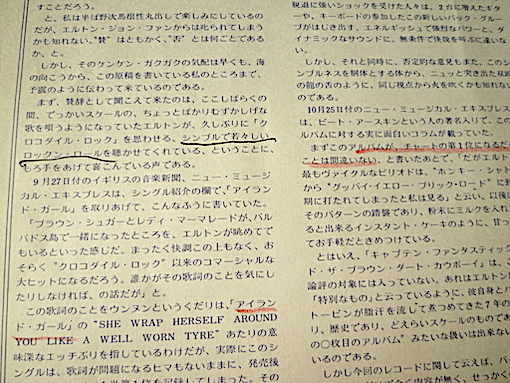 すことだろう。
と、私は半ば野次馬根性丸出しで楽しみにしているの
だが、エルトン・ジョン・ファンからは叱られてしまう
かも知れない。“賛”はともかく、“否”とは何ごとである
か、と。
しかし、そのケンケン・ガクガクの気配は早くも、海
の向こうから、この原稿を書いている私のところまで、
予震のように伝わって来ているのである。
まず、賛辞として聞こえて来たのは、ここしばらくの
間、でっかいスケールの、ちょっとばかりむずかしげな
歌を唄うようになっていたエルトンが、久しぶりに「ク
ロコダイル・ロック」を思わせる、シンプルで若々しい
ロックン・ロールを聴かせてくれている、ということに、
もろ手をあげて喜こんでいる声である。
9月27日付のイギリスの音楽新聞、ニュー・ミュージ
カル・エキスプレスは、シングル紹介の欄で、「アイラン
ド・ガール」を取りあげて、こんなふうに書いていた。
「ブラウン・シュガーとレディ・マーマレードが、バル
バドス島で一緒になったところを、エルトンが眺めてで
もいるといった感じだ。まったく快調この上もなく、お
そらく“クロコダイル・ロック”以来のコマーシャルな
大ヒットになるだろう。誰かがその歌詞のことを気にし
たりしなければ、の話だが」と。
この歌詞のことをウンヌンというくだりは、「アイラン
ド・ガール」の“SHE WRAP HERSELF AROUND
YOU LIKE A WELL WORN TYRE”あたりの意
味深なエッチぶりを指しているわけだが、実際にこのシ
ングルは、歌詞が問題になるヒマもないままに、発売後
第1位を記録してしまった。その
脱退に強いショックを受けた人々は、2台に増えたギタ
ーや、キーボードの参加したこの新しいバック・グルー
プがはじき出す、エネルギッシュで強烈なパワーと、ダ
イナミックなサウンドに、無条件で快哉を叫ぶに違いな
い。
しかし、それと同時に、否定的な意見もまた、このシ
ンプルネスを胴体とする体から、ニュッと突き出た双頭
の龍の舌のように、同じ視点から火を吹くかも知れない
のである。
10月25日付のニュー・ミュージカル・エキスプレス
は、ピート・アースキンという人の署名入りで、この
ルバムに対する実に面白いコラムが載っていた。
まずこのアルバムが、チャートの第1位になるだ
ことは間違いない、と書いたあとで、「だがエルト
最もヴァイタルなピリオドは、“ホンキー・シャト
から“グッバイ・イエロー・ブリック・ロード”に
期に打たれてしまったと私は見る」と云い、以後
そのパターンの踏襲であり、粉末にミルクを入れ
ると出来るインスタント・ケーキのように、甘っ
てお手軽だときめつけている。
とはいえ、「キャプテン・ファンタスティック
ド・ザ・ブラウン・ダート・カウボーイ」は、こ
論評の対象には入っていない。あれはエルトン
「特別なもの」と云っているように、彼自身とバ
トーピンが脂汗を流して煮つめてきた7年の
り、歴史であり、どえらいスケールのもので
の〇枚目のアルバム”みたいな扱いは出来ない
いる。
しかし今回のレコードに関して云えば、バ